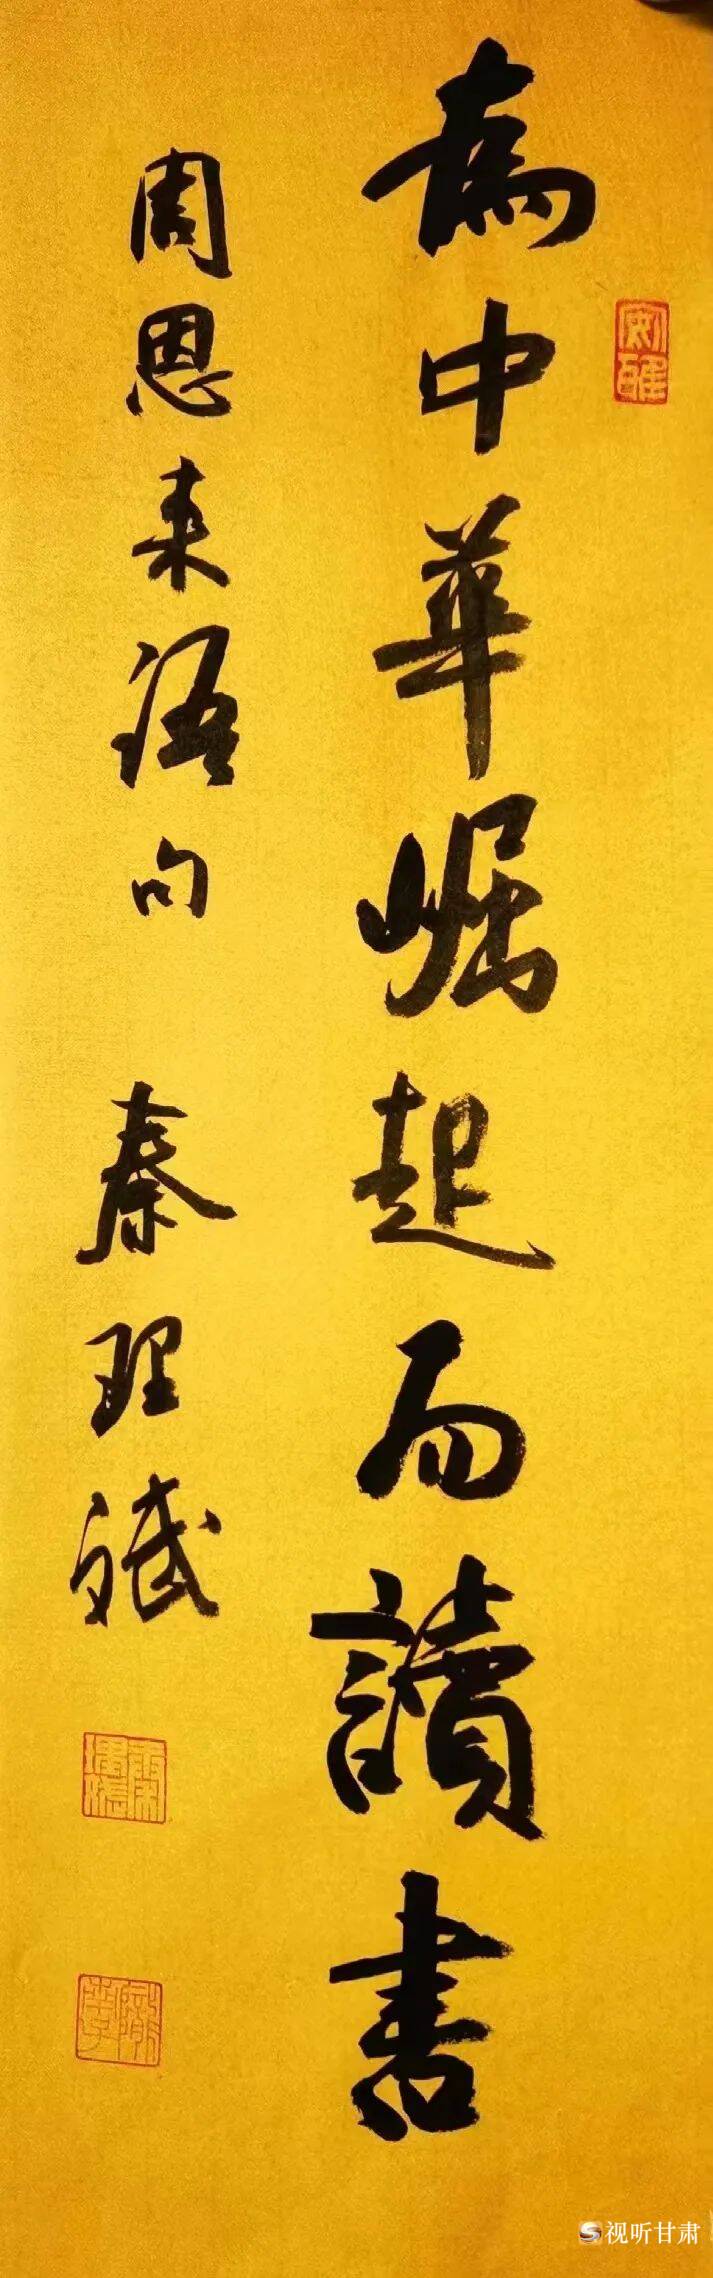 為中華崛起而讀書
周恩来语句 秦理斌
视听甘肃